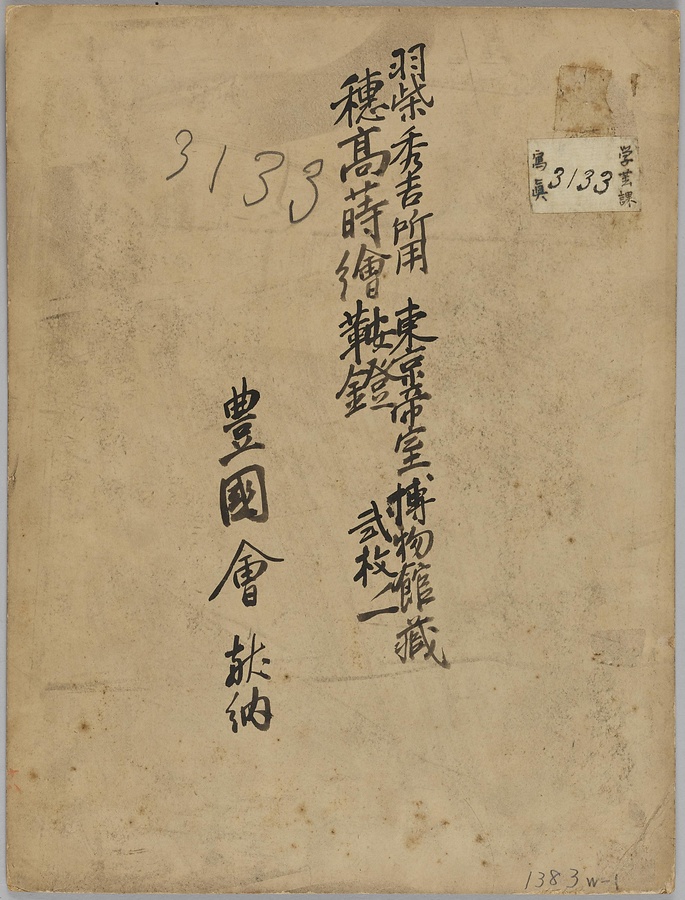 学芸課
3133
寫眞
羽柴秀吉所用 東京帝室博物館蔵
穗高蒔繪鞍鐙 弐枚ノ一
3133
豊國會献納
1383w-1